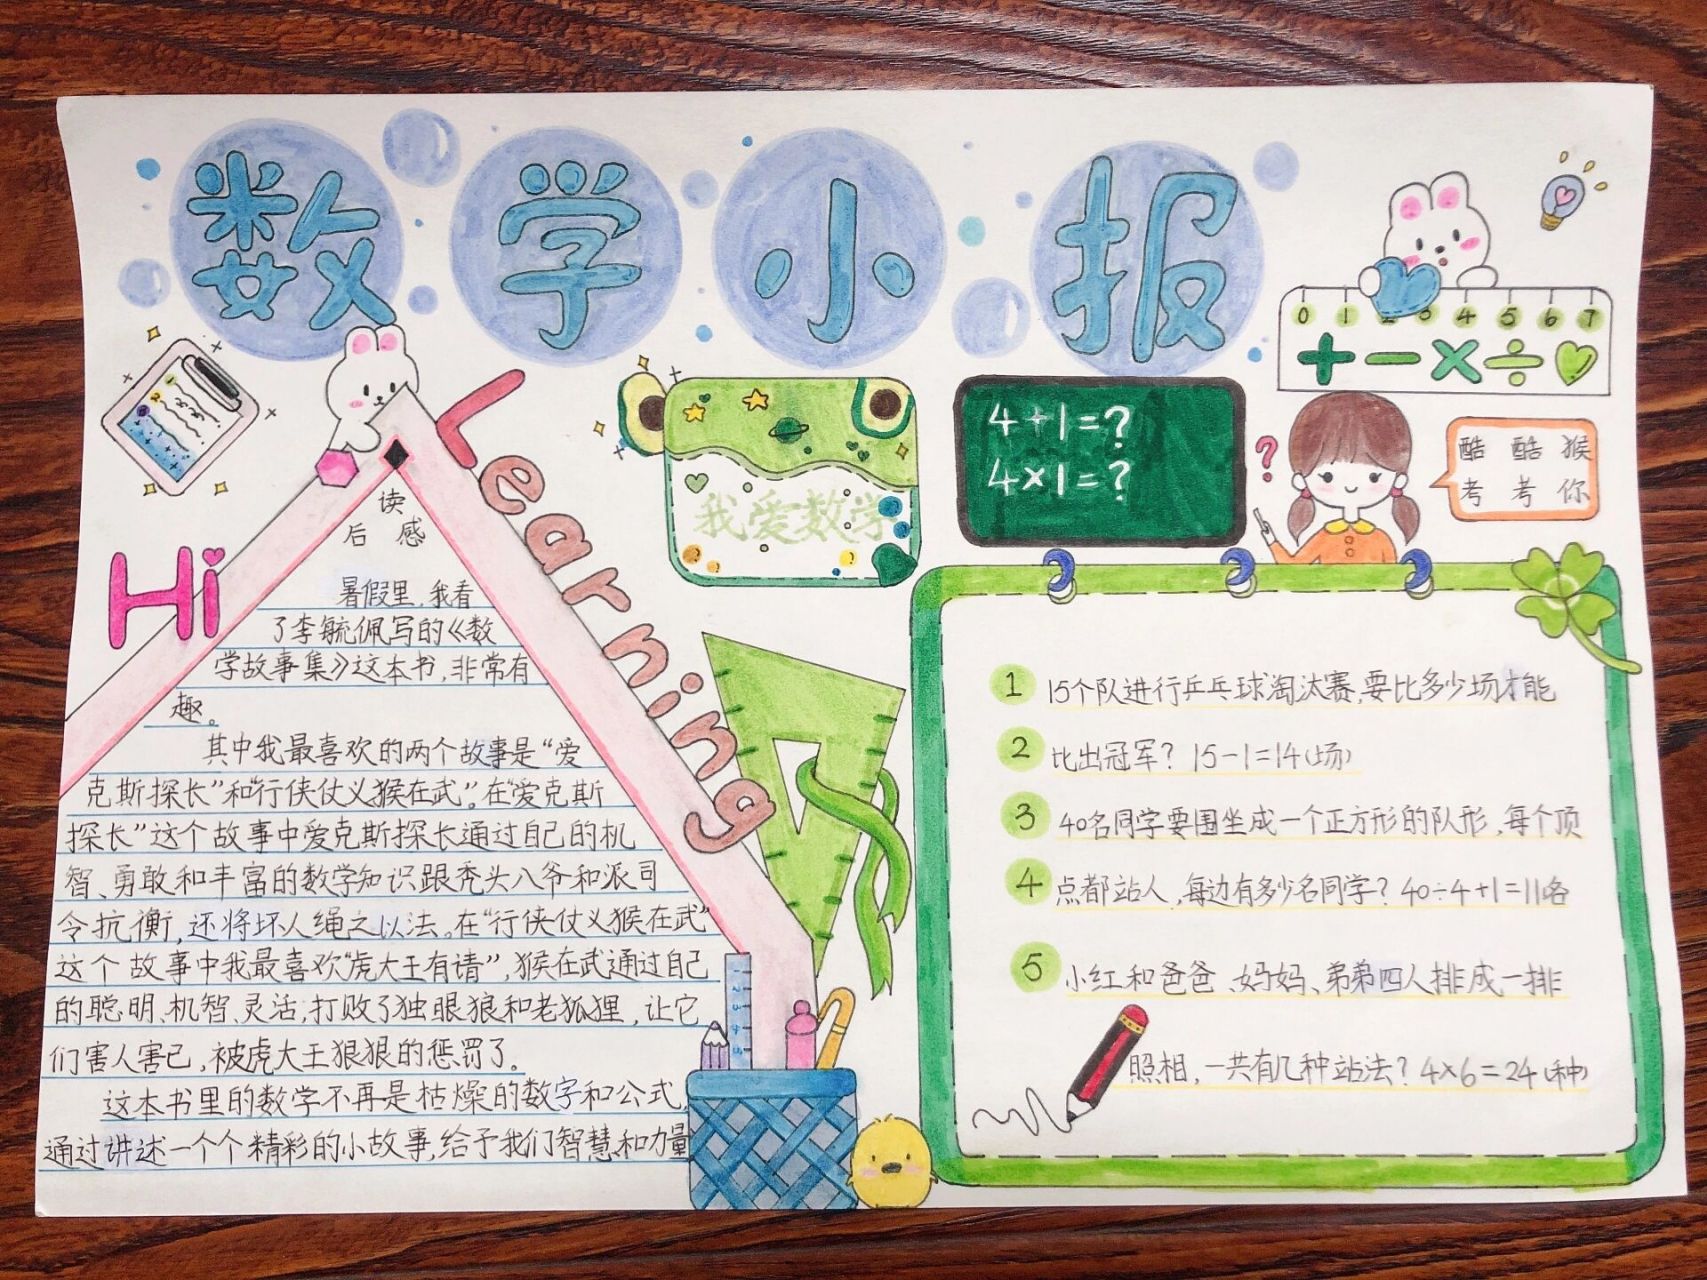 数学小报
0 1 2 3 4 5 6 7
+ - × ÷
Hi
Learning
读
后感
暑假里，我看
了李毓佩写的《数
学故事集》这本书，非常有
趣。
其中我最喜欢的两个故事是“爱
克斯探长”和“行侠仗义猴在武”。在“爱克斯
探长”这个故事中爱克斯探长通过自己的机
智、勇敢和丰富的数学知识跟秃头八爷和派司
令抗衡，还将坏人绳之以法。在“行侠仗义猴在武”
这个故事中我最喜欢“虎大王有请”，猴在武通过自己
的聪明、机智、灵活，打败了独眼狼和老狐狸，让它
们害人害己，被虎大王狠狠的惩罚了。
这本书里的数学不再是枯燥的数字和公式，
通过讲述一个个精彩的小故事，给予我们智慧和力量
我爱数学
4+1=?
4×1=?
?
酷酷猴
考考你
1 15个队进行乒乓球淘汰赛，要比多少场才能
2 比出冠军？15-1=14(场)
3 40名同学要围坐成一个正方形的队形，每个顶
4 点都站人，每边有多少名同学？40÷4+1=11名
5 小红和爸爸、妈妈、弟弟四人排成一排
照相，一共有几种站法？4×6=24(种)